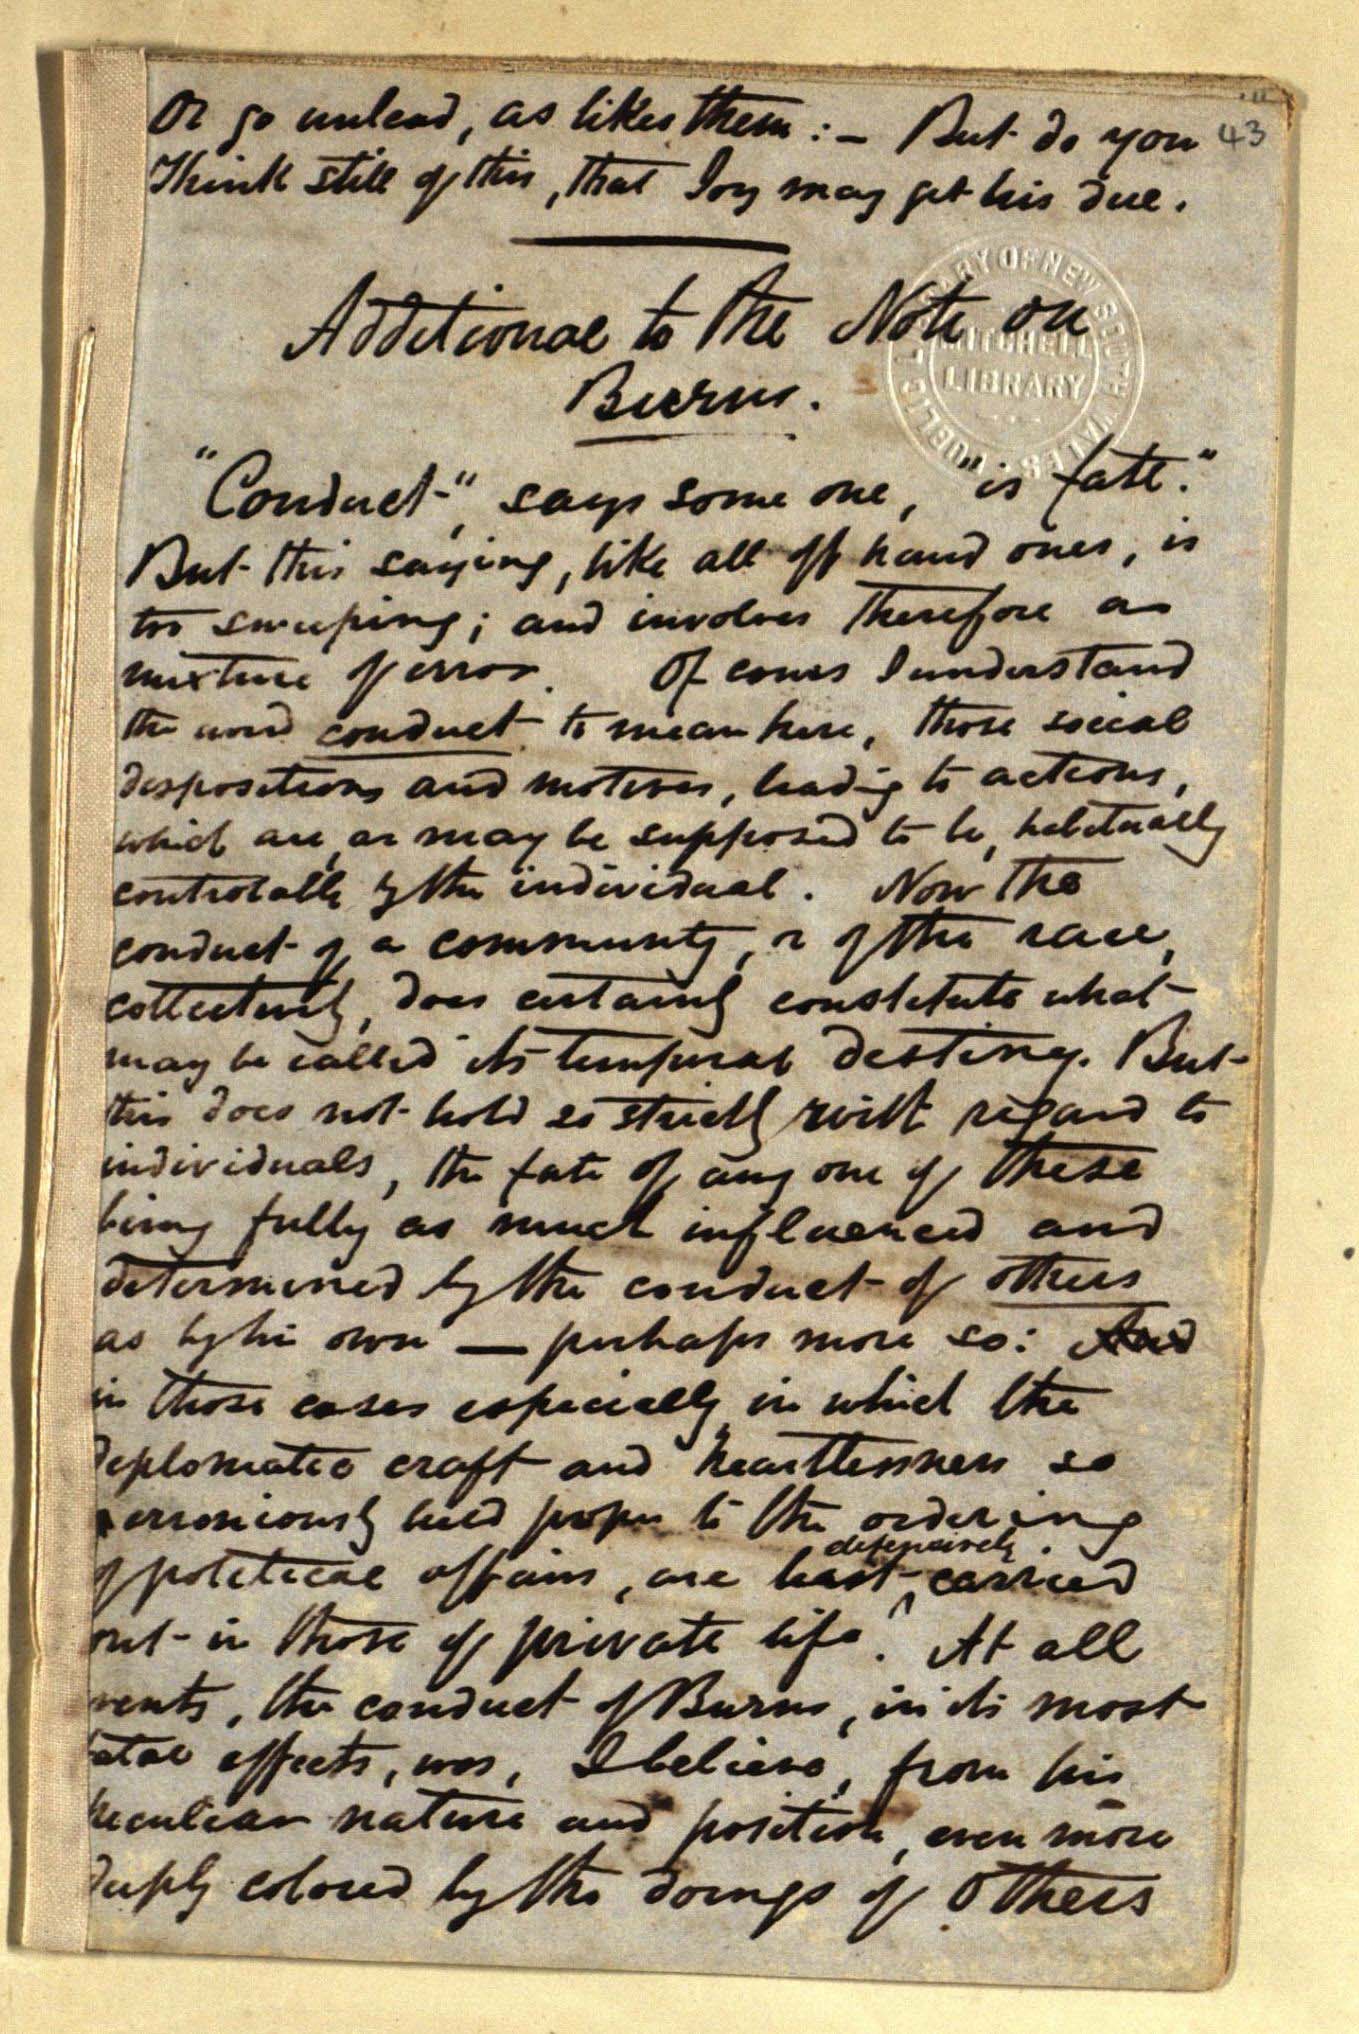 Or go unlead, as likes them: — But do you 43
Think still of this, that Joy may get his due.
Additional to the Note on
Burns.
"Conduct", says some one, "is fate."
But this saying, like all off hand ones, is
too sweeping; and involves therefore a
mixture of error. Of cours I understand
the word conduct to mean here, those social
dispositions and motives, leading to actions,
which are, or may be supposed to be, habitually
controlable by the individual. Now the
conduct of a community, or of the race,
collectively, does certainly constitute what
may be called its temporal destiny. But
this does not hold so strictly with regard to
individuals, the fate of any one of these
being fully as much influenced and
determined by the conduct of others
as by his own — perhaps more so: And
in those cases especially in which the
diplomatic craft and heartlessness so
erroniously held proper to the ordering
defensively
of political affairs, are least carried
out in those of private life. At all
events, the conduct of Burns, in its most
fatal effects, was, I believe, from his
peculiar nature and position, even more
deeply colored by the doings of others
PUBLIC LIBRARY OF NEW SOUTH WALES
MITCHELL
LIBRARY